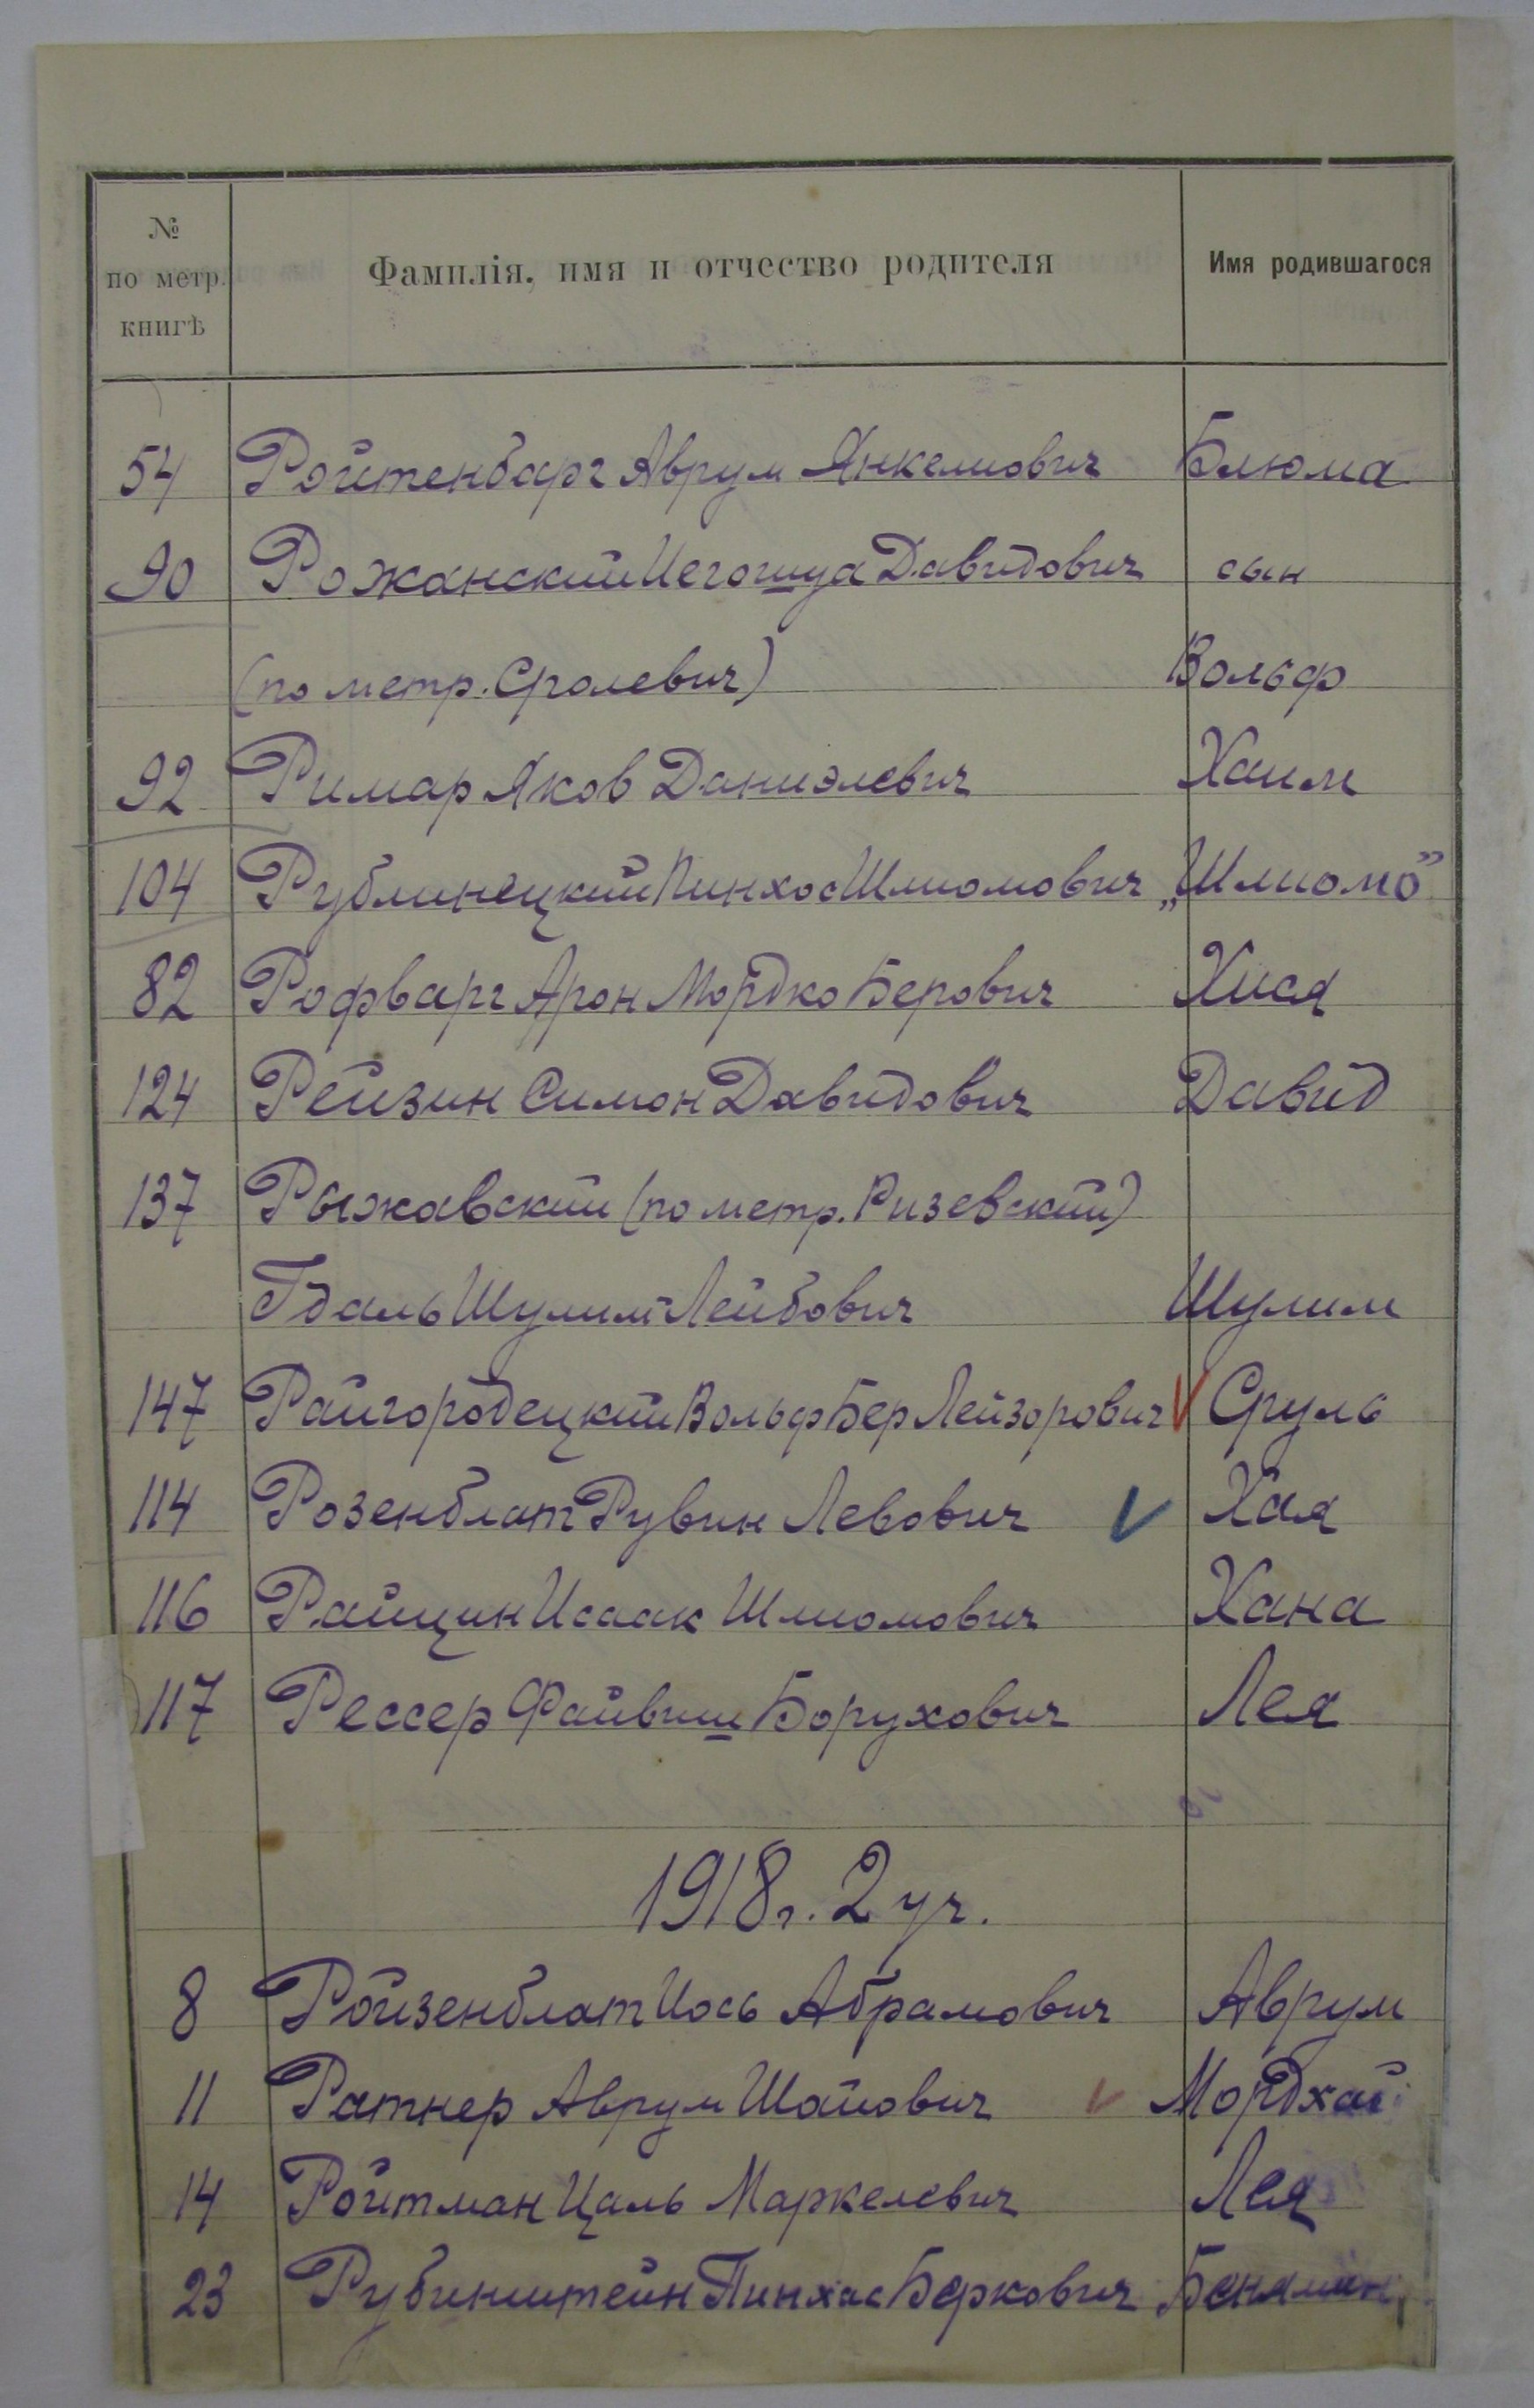 № по метр. книгѣ Фамилія, имя и отчество родителя Имя родившагося
54 Ройтенбарг Аврум Янкелиович Блюма
90 Рожанский Иегошуа Давидович сын
(по метр. Сролевич) Вольф
92 Римар Яков Даниэлевич Хаим
104 Рублинецкий Пинхос Шлиомович „Шлиомо”
82 Рофварг Арон Мордко Берович Хися
124 Рейзин Симон Давидович Давид
137 Рыжавский (по метр. Ризевский)
Гдаль Шулим Лейбович Шулим
147 Райгородецкий Вольф Бер Лейзорович V Сруль
114 Розенблат Рувин Левович V Хая
116 Райцин Исаак Шлиомович Хана
117 Рессер Файвиш Борухович Лея
1918 г. 2 уч.
8 Ройзенблат Иось Абрамович Аврум
11 Ратнер Аврум Шайович V Мордхай
14 Ройтман Цаль Маркелевич Лея
23 Рубинштейн Пинхас Беркович Бениамин